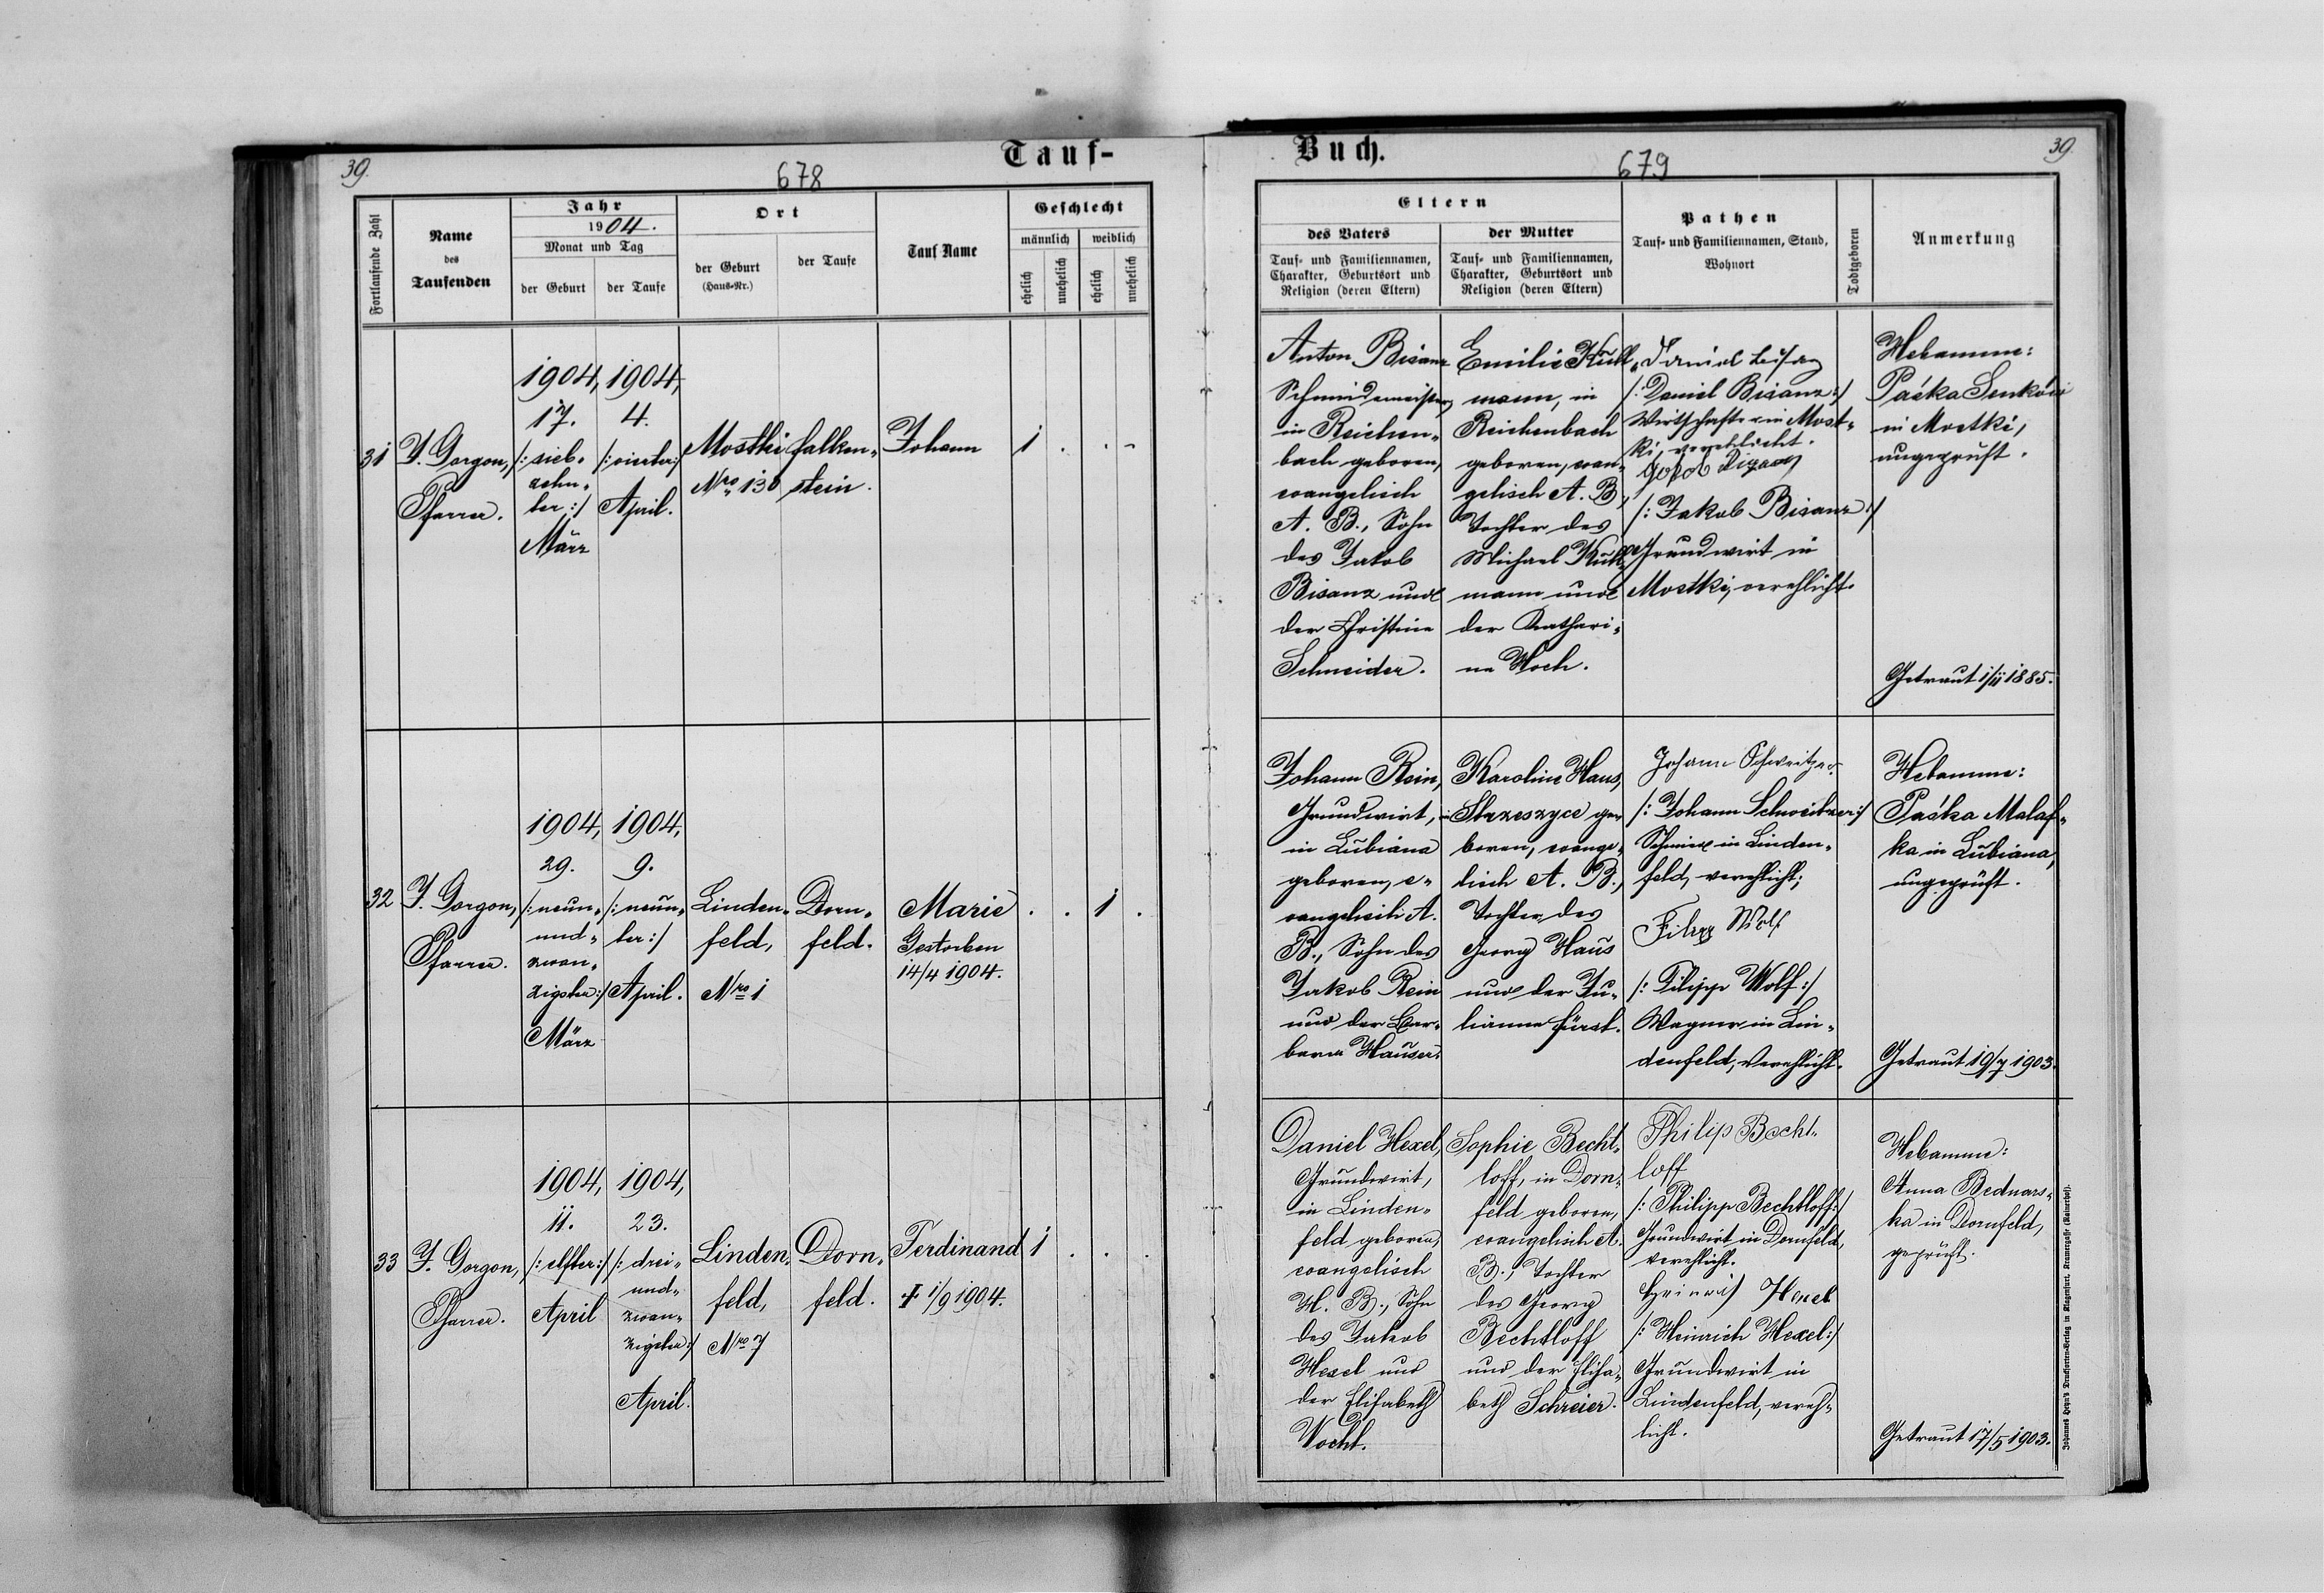 39.
678
Tauf-
Fortlaufende Zahl
Name
des
Taufenden
Jahr
1904.
Monat und Tag
der Geburt
der Taufe
Ort
der Geburt
(Haus-Nr.)
der Taufe
Tauf Name
Geschlecht
männlich
weiblich
ehelich
unehelich
ehelich
unehelich
31
J. Gorgon,
Pfarrer.
1904,
17.
/: sieb-
zehn-
ter :/
März
1904,
4.
/: vierter :/
April.
Mostki
Nro 130
Falken-
stein.
Johann
1 . . -
32
J. Gorgon,
Pfarrer.
1904,
29.
/: neun-
und-
zwan-
zigster :/
März
1904,
9.
/: neun-
ter :/
April.
Linden-
feld,
Nro 1
Dorn-
feld.
Marie
Gestorben
14/4 1904.
. . 1 .
33
J. Gorgon,
Pfarrer.
1904,
11.
/: elfter :/
April
1904,
23.
/: drei-
und-
zwan-
zigster :/
April.
Linden-
feld,
Nro 7
Dorn-
feld.
Ferdinand
+ 1/9 1904.
1 . . .
Buch.
679
39.
Eltern
des Vaters
Tauf- und Familiennamen,
Charakter, Geburtsort und
Religion (deren Eltern)
der Mutter
Tauf- und Familiennamen,
Charakter, Geburtsort und
Religion (deren Eltern)
Pathen
Tauf- und Familiennamen, Stand,
Wohnort
Todtgeboren
Anmerkung
Anton Bisanz
Schmidemeister,
in Reichen-
bach geboren,
evangelisch
A. B., Sohn
des Jakob
Bisanz und
der Christine
Schneider.
Emilie Kull-
mann, in
Reichenbach
geboren, evan-
gelisch A. B.,
Tochter des
Michael Kull-
mann und
der Kathari-
na Koch.
Daniel
/: Daniel Bisanz :/
Wirtschafter in Most-
ki, verehlicht.
/: Jakob Bisanz :/
Grundwirt in
Mostki, verehlicht.
Hebamme:
Paśka Senków
in Mostki,
ungeprüft.
Getraut 1/11 1885.
Johann Rein,
Grundwirt,
in Lubiana
geboren, e-
vangelisch A.
B., Sohn des
Jakob Rein
und der Bar-
bara Hauser.
Karoline Haus,
in Strzeszyce ge-
boren, evange-
lisch A. B.,
Tochter des
Georg Haus
und der Ju-
lianna Fürst.
Johann Schweitzer
/: Johann Schweitzer :/
Schmied in Linden-
feld, verehlicht;
Filipp Wolf
/: Filipp Wolf :/
Wagner in Lin-
denfeld, verehlicht.
Hebamme:
Paśka Malaf-
ka in Lubiana,
ungeprüft.
Getraut 19/7 1903.
Daniel Hexel,
Grundwirt,
in Linden-
feld geboren,
evangelisch
H. B., Sohn
des Jakob
Hexel und
der Elisabeth
Vocht.
Sophie Becht-
loff, in Dorn-
feld geboren,
evangelisch A.
B., Tochter
des Georg
Bechtloff
und der Elisa-
beth Schreier.
Philip Becht-
loff
/: Philipp Bechtloff :/
Grundwirt in Dornfeld,
verehlicht.
Heinrich Hexel
/: Heinrich Hexel :/
Grundwirt in
Lindenfeld, vereh-
licht.
Hebamme:
Anna Bednars-
ka in Dornfeld,
geprüft.
Getraut 17/5 1903.
Johannes Heyn's Drucksorten-Verlag in Klagenfurt, Kramergasse (Rainerhof).